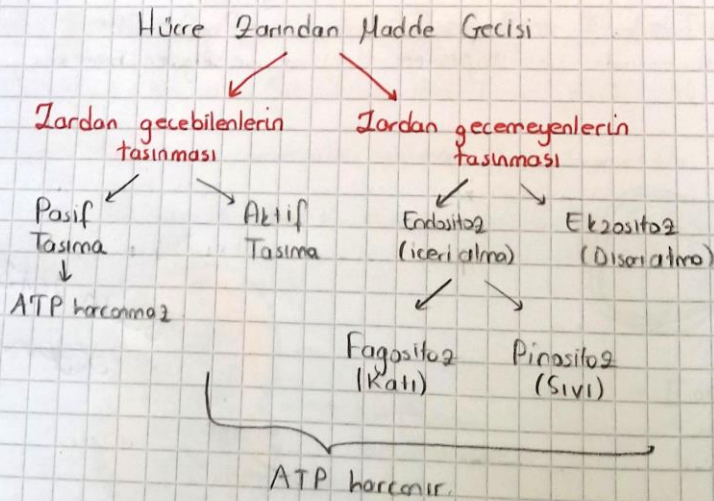 Hücre Zarından Madde Gecisi
Zardan gecebilenlerin
tasınması
Zardan gecemeyenlerin
tasınması
Pasif
Tasıma
ATP harcanmaz
Aktif
Tasıma
Endositoz
(iceri alma)
Ekzositoz
(Dısarı atma)
Fagositoz
(Katı)
Pinositoz
(Sıvı)
ATP harcanır.